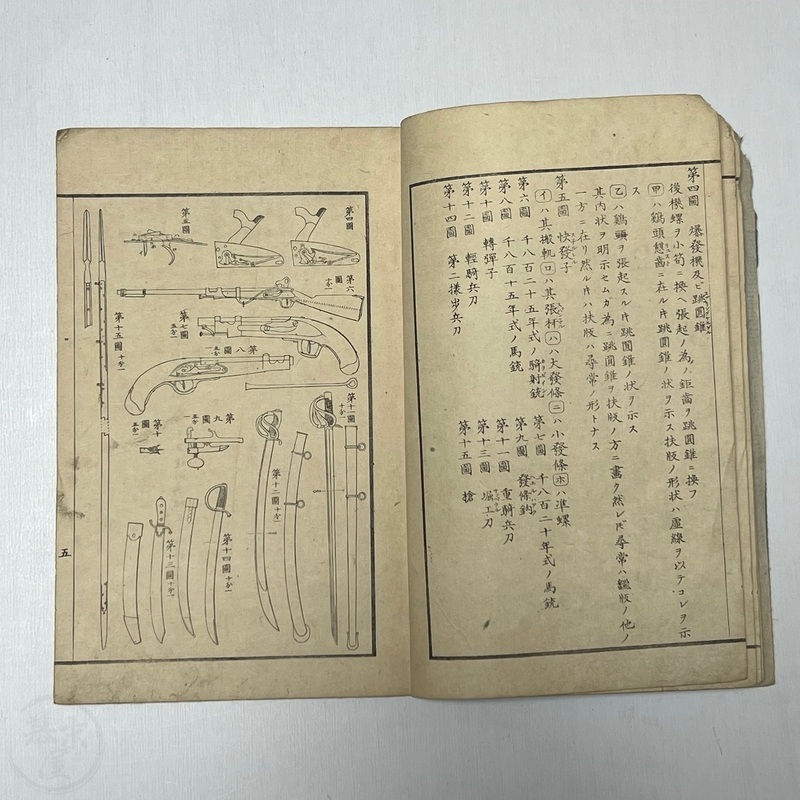 第四圖 爆發機及ビ跳圓錐
後機螺ヲ小筍ニ換ヘ張起ノ為ノ鉅齒ヲ跳圓錐ニ換フ
甲ハ鷄頭憩齒ニ在ル𪜈跳圓錐ノ状ヲ示ス扶版ノ形状ハ虚線ヲ以テコレヲ示
ス
乙ハ鷄頭ヲ張起スル𪜈跳圓錐ノ状ヲ示ス
其内状ヲ明示セムガ為ニ跳圓錐ヲ扶版ノ方ニ畫ク然レ𪜈尋常ハ鑑版ノ他ノ
一方ニ在リ然ル𪜈ハ扶版ハ尋常ノ形トナス
第五圖 快發子
イハ其搬軌ロハ其張杆ハハ大發條ニハ小發條ホハ準螺
第六圖 千八百二十五年式ノ騎射銃
第七圖 千八百二十年式ノ馬銃
第八圖 千八百十五年式ノ馬銃
第九圖 發條鈎
第十圖 轉彈子
第十一圖 重騎兵刀
第十二圖 輕騎兵刀
第十三圖 堀工刀
第十四圖 第二樣歩兵刀
第十五圖 槍
第四圖
第五圖
第六圖 十分一
第七圖 五分一
第八圖 五分一
第九圖 五分一
第十圖 五分一
第十一圖 十分一
第十二圖 十分一
第十三圖 十分一
第十四圖 十分一
第十五圖 十分一
五